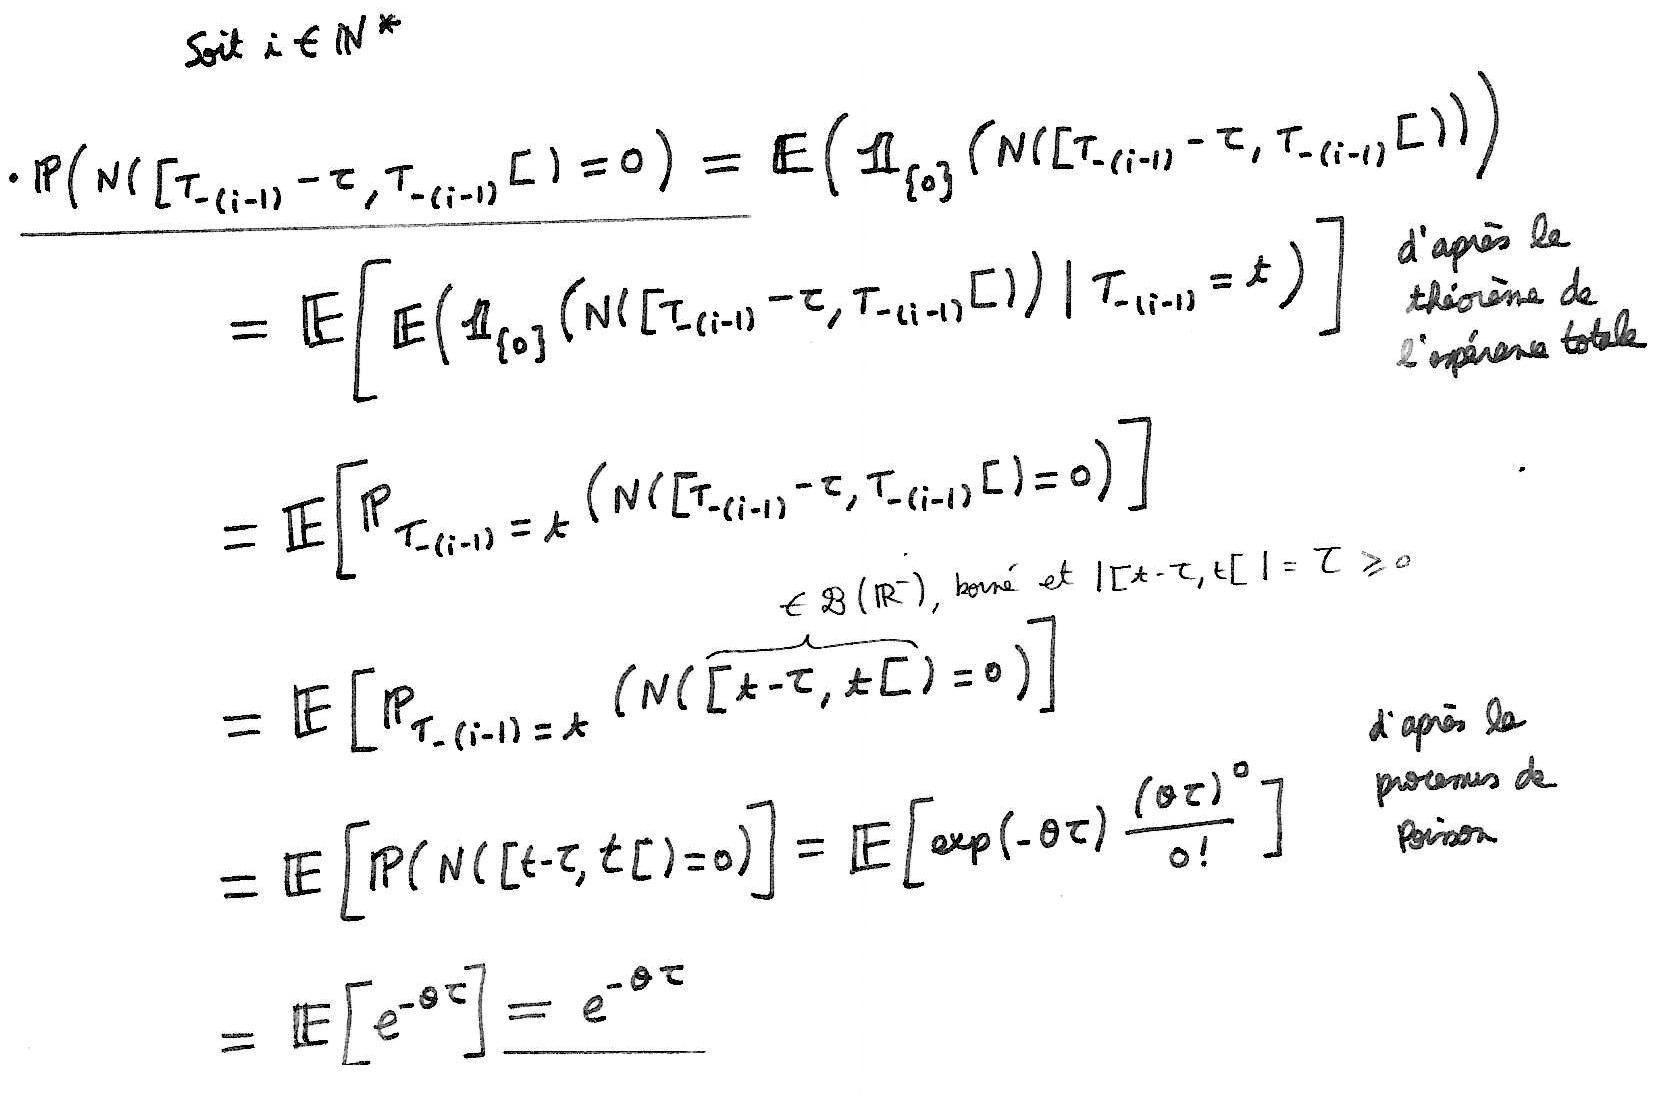 Soit i ∈ ℕ*
· ℙ(N([T₋₍ᵢ₋₁₎ - τ, T₋₍ᵢ₋₁₎[) = 0) = 𝔼(𝟙_{0}(N([T₋₍ᵢ₋₁₎ - τ, T₋₍ᵢ₋₁₎[)))
= 𝔼[𝔼(𝟙_{0}(N([T₋₍ᵢ₋₁₎ - τ, T₋₍ᵢ₋₁₎[)) | T₋₍ᵢ₋₁₎ = t)]
d'après le
théorème de
l'espérance totale
= 𝔼[ℙ_{T₋₍ᵢ₋₁₎ = t}(N([T₋₍ᵢ₋₁₎ - τ, T₋₍ᵢ₋₁₎[) = 0)]
∈ ℬ(ℝ⁻), borné et |[t - τ, t[| = τ ⩾ 0
= 𝔼[ℙ_{T₋₍ᵢ₋₁₎ = t}(N([t - τ, t[) = 0)]
= 𝔼[ℙ(N([t - τ, t[) = 0)] = 𝔼[exp(-θτ) (θτ)⁰/0!]
d'après le
processus de
Poisson
= 𝔼[e^{-θτ}] = e^{-θτ}